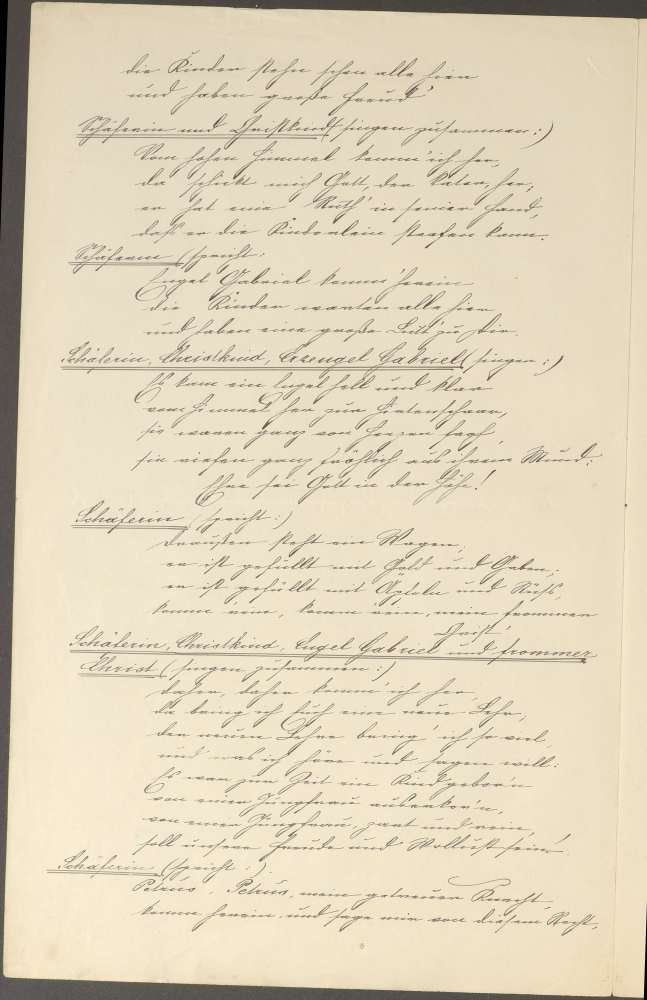 die Kinder stehn schon alle hier
und haben große Freud'
Schäferin und Christkind (singen zusammen:)
Vom hohen Himmel komm' ich her,
da schickt mich Gott, der Vater, her,
er hat eine Ruth' in seiner Hand,
daß er die Kinderlein strafen kann.
Schäferin (spricht:
Engel Gabriel komm' herein
die Kinder warten alle hier
und haben eine große Lust zu Dir.
Schäferin, Christkind, Erzengel Gabriel (singen:)
Es kam ein Engel hell und klar
vom Himmel her zur Hirtenschaar,
sie waren ganz von Herzen
sie riefen ganz fröhlich aus ihrem Mund:
Ehre sei Gott in der Höhe!
Schäferin (spricht:)
Draußen steht ein Wagen,
er ist gefüllt mit Gold und Gaben,
er ist gefüllt mit Äpfeln und Nüss,
komm 'rein, komm 'rein, mein frommer
Christ'
Schäferin, Christkind, Engel Gabriel und frommer
Christ (singen zusammen:)
daher, daher komm' ich her,
da bring ich Euch eine neue Lehr,
der neuen Lehre bring ich so viel,
und was ich höre und sagen will:
Es war zur Zeit ein Kind gebor'n
von einer Jungfrau auserkor'n,
von einer Jungfrau, zart und rein,
soll unsere Freude und Wollust sein!
Schäferin (spricht:)
Petrus, Petrus, mein getreuer Knecht,
komm herein und sage mir von diesem Recht,